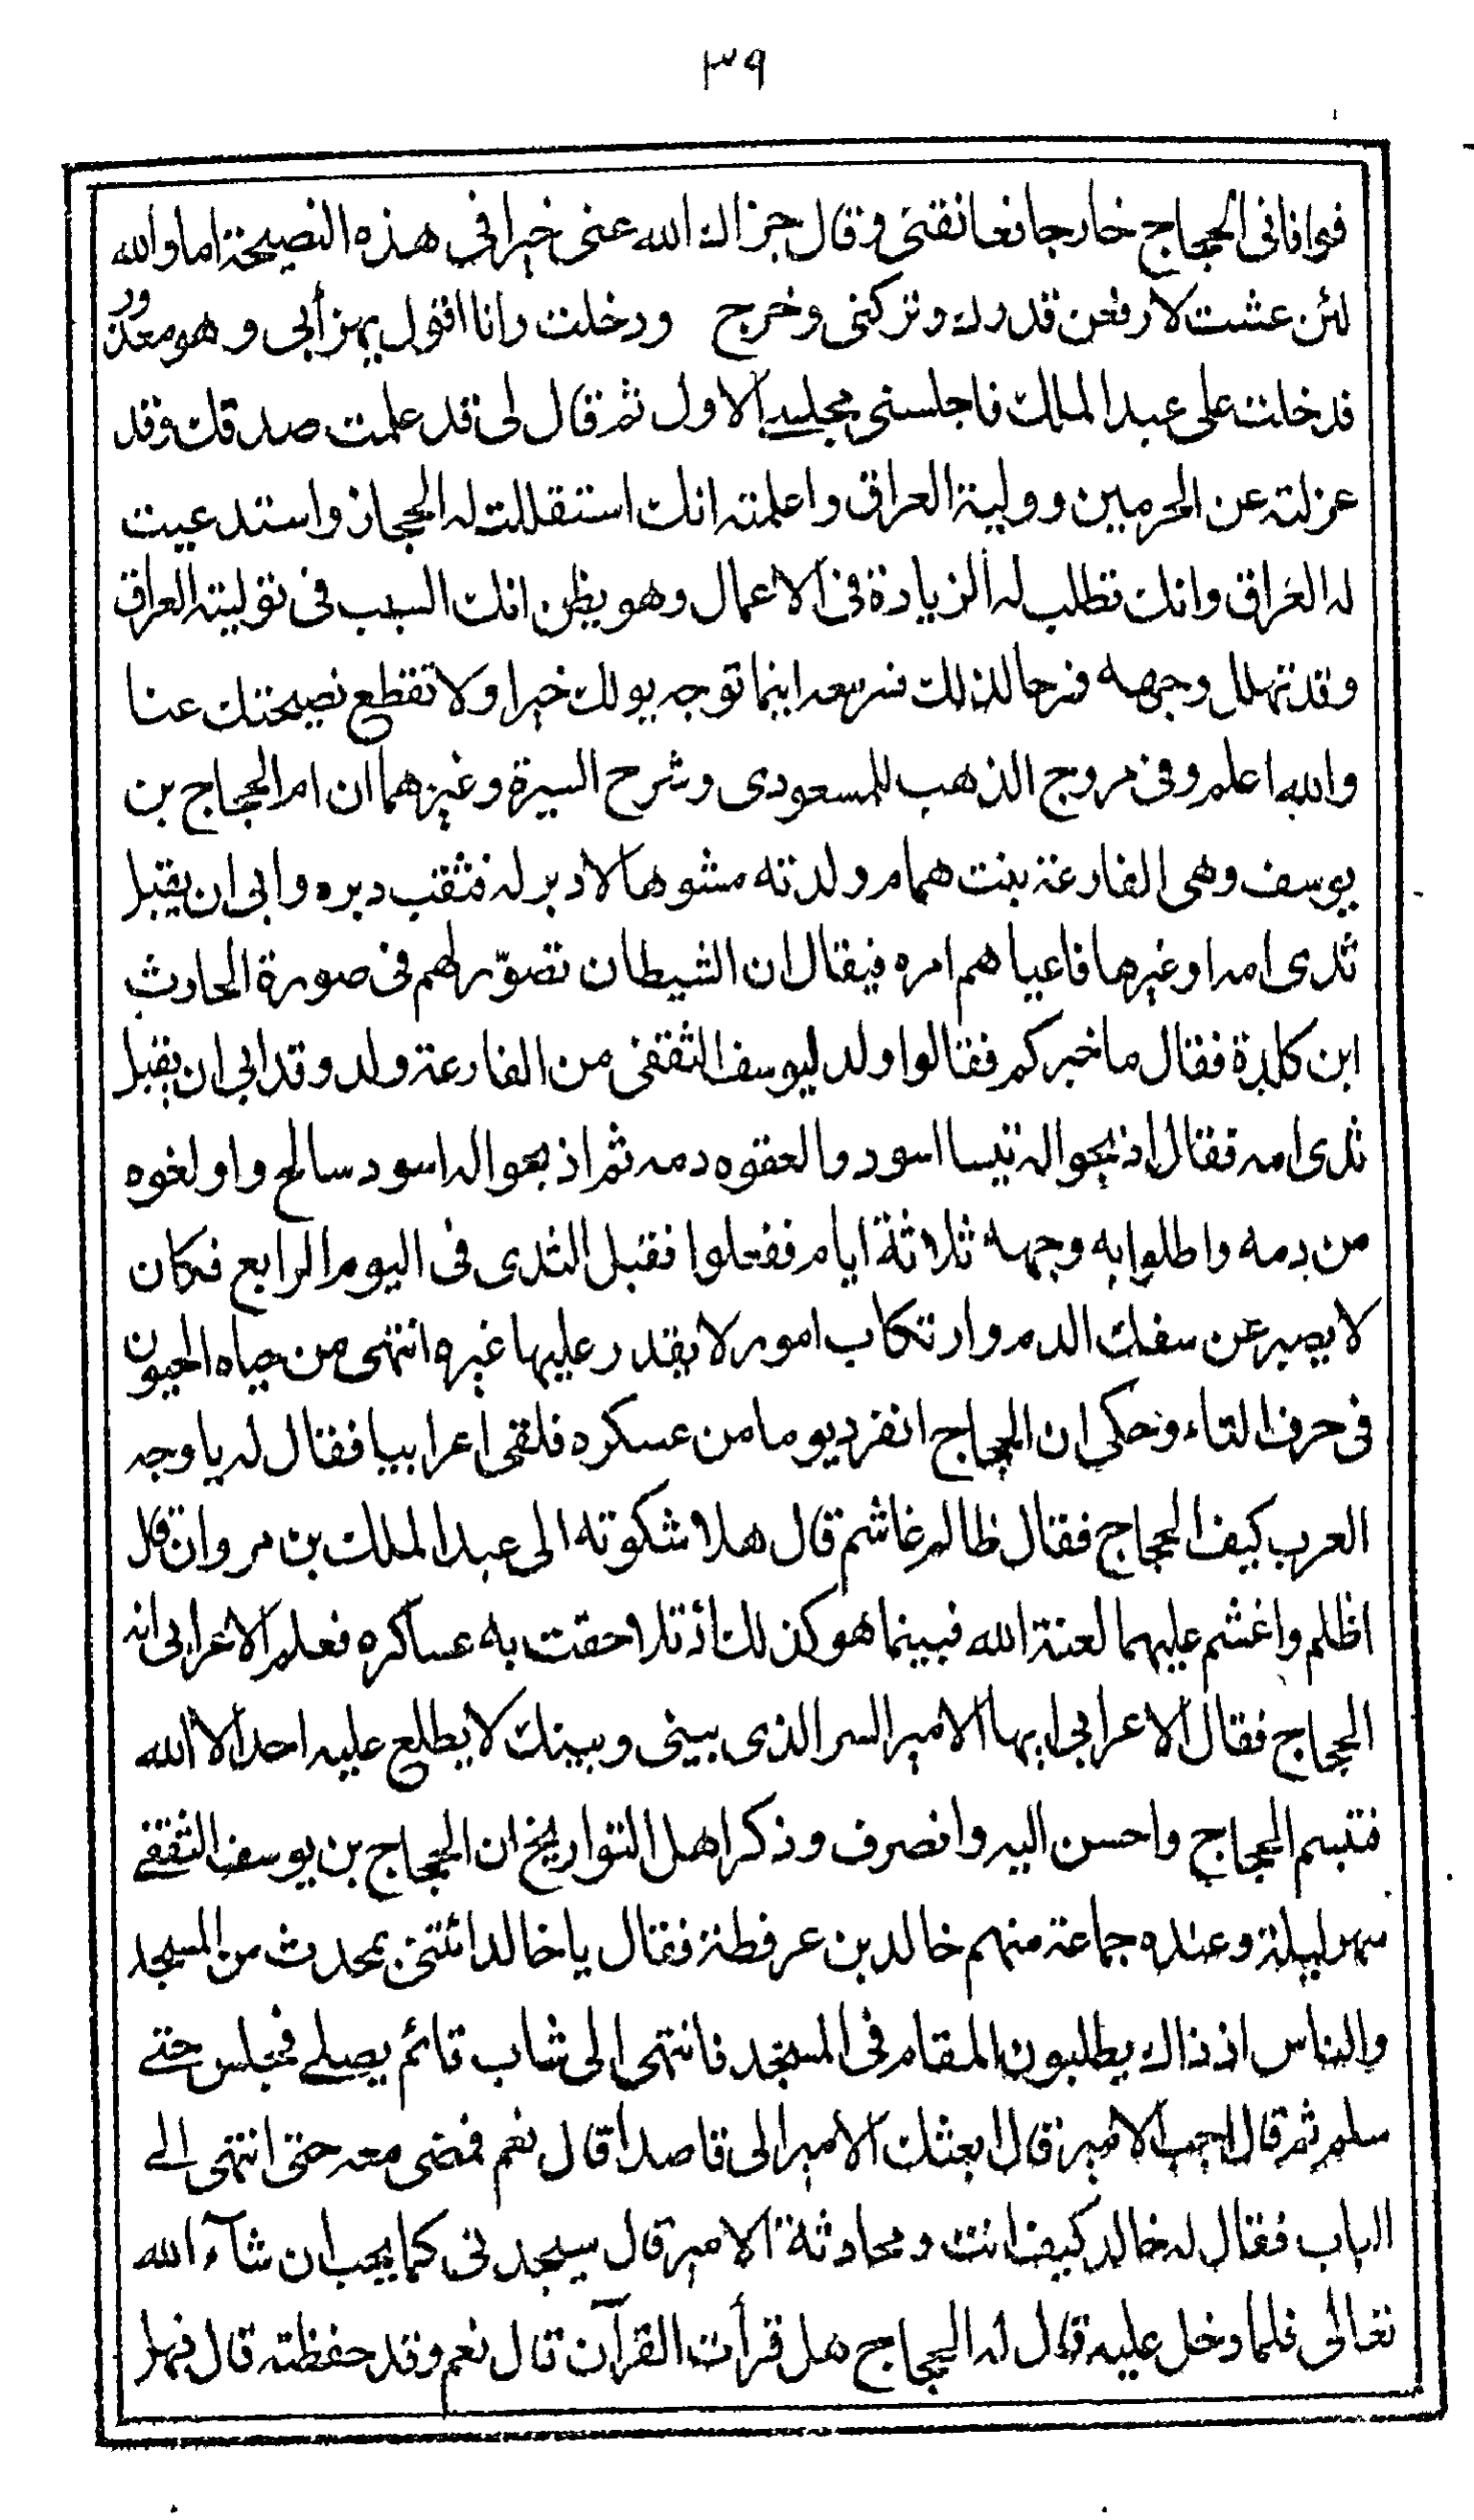 ٣٩
فوافانى الحجاج خارجا نعانقنى وقال جزاك الله عنى خيرا فى هذه النصيحة اما والله
لئن عشت لارفعن قدرك وتركنى وخرج ودخلت وانا اقول يهزأبى وهو معذور
فدخلت على عبد الملك فاجلسنى مجلسى الاول ثم قال لى قد علمت صدقك وقد
عزلته عن الحرمين ووليته العراق واعلمته انك استقللت له الحجاز واستدعيت
له العراق وانك تطلب له الزيادة فى الاعمال وهو يظن انك السبب فى توليته العراق
وقد تهلل وجهه فرحا لذلك فسر معه اينما توجه يولك خيرا ولا تقطع نصيحتك عنا
والله اعلم وفى مروج الذهب للمسعودى وشرح السيرة وغيرهما ان ام الحجاج بن
يوسف وهى الفارعة بنت همام ولدته مشوها لادبر له فثقب دبره وابى ان يقبل
ثدى امه او غيرها فاعياهم امره فيقال ان الشيطان تصوّر لهم فى صورة الحارث
ابن كلدة فقال ما خبركم فقالوا ولد ليوسف الثقفى من الفارعة ولد وقد ابى ان يقبل
ثدى امه فقال اذبحوا له تيسا اسود والعقوه دمه ثم اذبحوا له اسود سالخ واولغوه
من دمه واطلوا به وجهه ثلاثة ايام ففعلوا فقبل الثدى فى اليوم الرابع فكان
لا يصبر عن سفك الدم وارتكاب امور لا يقدر عليها غيره انتهى من حياه الحيون
فى حرف التاء وحكى ان الحجاج انفرد يوما من عسكره فلقى اعرابيا فقال له يا وجه
العرب كيف الحجاج فقال ظالم غاشم قال هلا شكوته الى عبد الملك بن مروان قال
اظلم واغشم عليهما لعنة الله فبينما هو كذلك اذ تلاحقت به عساكره فعلم الاعرابى انه
الحجاج فقال الاعرابى ايها الامير السر الذى بينى وبينك لا يطلع عليه احد الا الله
فتبسم الحجاج واحسن اليه وانصرف وذكر اهل التواريخ ان الحجاج بن يوسف الثقفى
سهر ليلة وعنده جماعة منهم خالد بن عرفطة فقال يا خالد ائتنى بمحدث من المسجد
والناس اذ ذاك يطلبون المقام فى المسجد فانتهى الى شاب قائم يصلى فجلس حتى
سلم ثم قال اجب الامير قال ابعثك الامير الى قاصدا قال نعم فمضى معه حتى انتهى الى
الباب فقال له خالد كيف انت ومحادثة الامير قال سيجدنى كما يحب ان شآء الله
تعالى فلما دخل عليه قال له الحجاج هل قرأت القرآن قال نعم وقد حفظته قال فهل